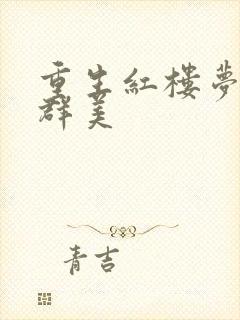 重生紅樓夢
群美
青吉